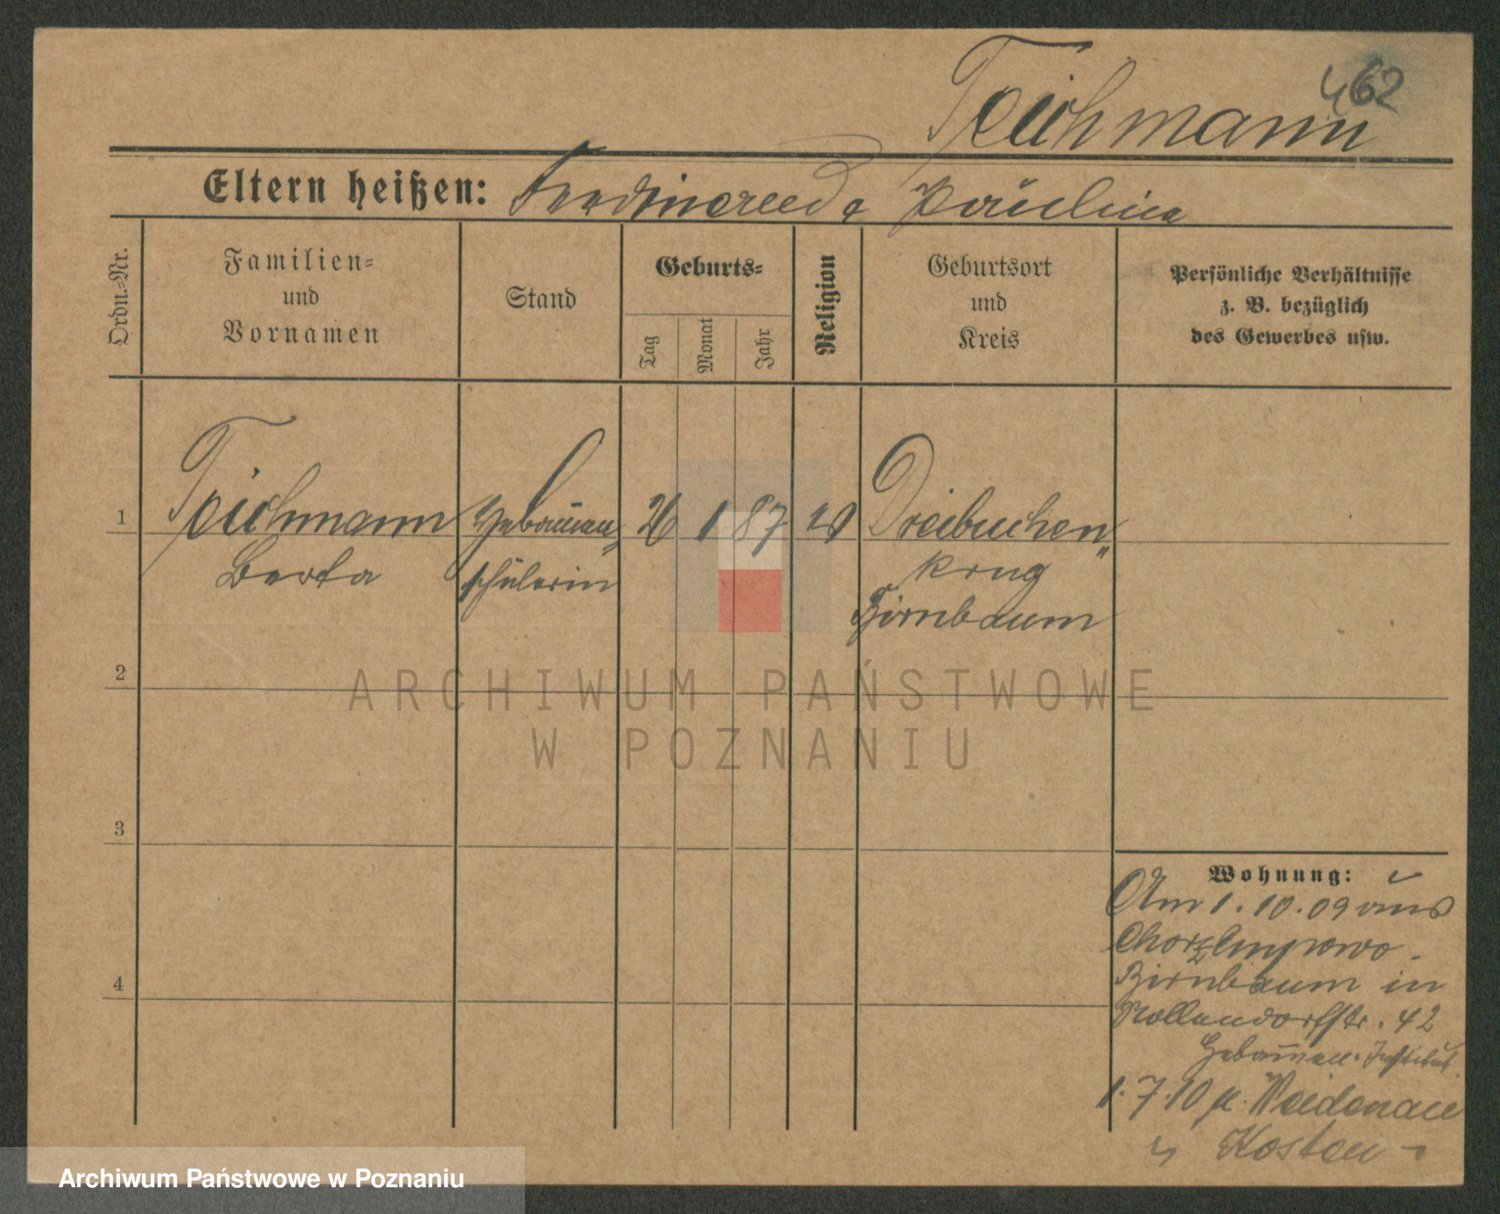 462
Teichmann
Eltern heißen: Ferdinand & Pauline
Ordn.-Nr.
Familien-
und
Vornamen
Stand
Geburts-
Tag
Monat
Jahr
Religion
Geburtsort
und
Kreis
Persönliche Verhältnisse
z. B. bezüglich
des Gewerbes usw.
1 Teichmann Hebam̄en 26 1 87 Dreibuchen
Berta schülerin krug
Birnbaum
2
3
4
Wohnung:
Am 1. 10. 09 aus
Birnbaum in
Nollendorfstr. 42
Hebam̄en-Institut.
1. 7. 10
Kosten
ARCHIWUM PAŃSTWOWE
W POZNANIU
Archiwum Państwowe w Poznaniu